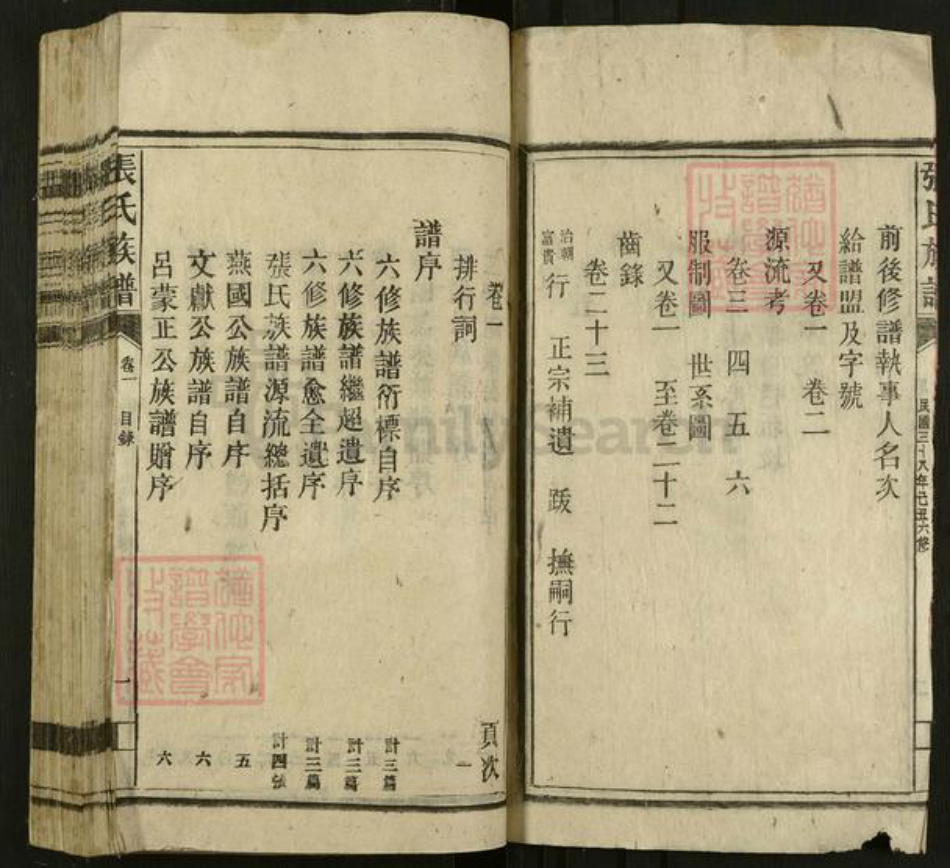 張氏族譜
民國三十八年己丑六修
前後修譜執事人名次
給譜盟及字號
又卷一 卷二
源流考
卷三 四 五 六
服制圖 世系圖
又卷一 至卷二十二
齒錄
卷二十三
治朝富貴行 正宗補遺 跋 撫嗣行
卷一 頁次
排行詞 一
譜序
六修族譜衍標自序 計三篇
六修族譜繼超遺序 計三篇
六修族譜愈全遺序 計三篇
張氏族譜源流總括序 計四張
燕國公族譜自序 五
文獻公族譜自序 六
呂蒙正公族譜贈序 六
張氏族譜
卷一 目錄
一
FamilySearch